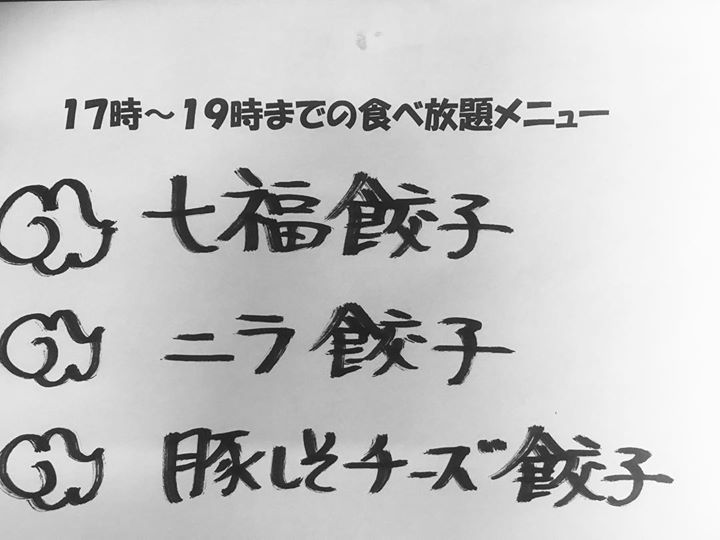 17時～19時までの食べ放題メニュー
七福餃子
ニラ餃子
豚しそチーズ餃子